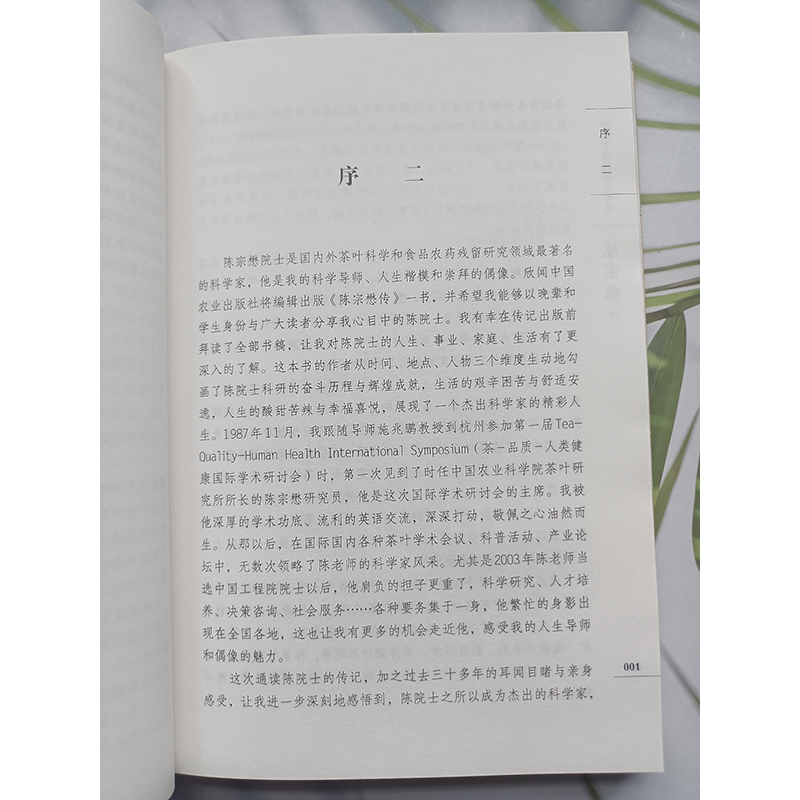 序 二
陈宗懋院士是国内外茶叶科学和食品农药残留研究领域最著名
的科学家，他是我的科学导师、人生楷模和崇拜的偶像。欣闻中国
农业出版社将编辑出版《陈宗懋传》一书，并希望我能够以晚辈和
学生身份与广大读者分享我心目中的陈院士。我有幸在传记出版前
拜读了全部书稿，让我对陈院士的人生、事业、家庭、生活有了更
深入的了解。这本书的作者从时间、地点、人物三个维度生动地勾
画了陈院士科研的奋斗历程与辉煌成就，生活的艰辛困苦与舒适安
逸，人生的酸甜苦辣与幸福喜悦，展现了一个杰出科学家的精彩人
生。1987年11月，我跟随导师施兆鹏教授到杭州参加第一届Tea-
Quality-Human Health International Symposium（茶－品质－人类健
康国际学术研讨会）时，第一次见到了时任中国农业科学院茶叶研
究所所长的陈宗懋研究员，他是这次国际学术研讨会的主席。我被
他深厚的学术功底、流利的英语交流，深深打动，敬佩之心油然而
生。从那以后，在国际国内各种茶叶学术会议、科普活动、产业论
坛中，无数次领略了陈老师的科学家风采。尤其是2003年陈老师当
选中国工程院院士以后，他肩负的担子更重了，科学研究、人才培
养、决策咨询、社会服务……各种要务集于一身，他繁忙的身影出
现在全国各地，这也让我有更多的机会走近他，感受我的人生导师
和偶像的魅力。
这次通读陈院士的传记，加之过去三十多年的耳闻目睹与亲身
感受，让我进一步深刻地感悟到，陈院士之所以成为杰出的科学家，
序二
001